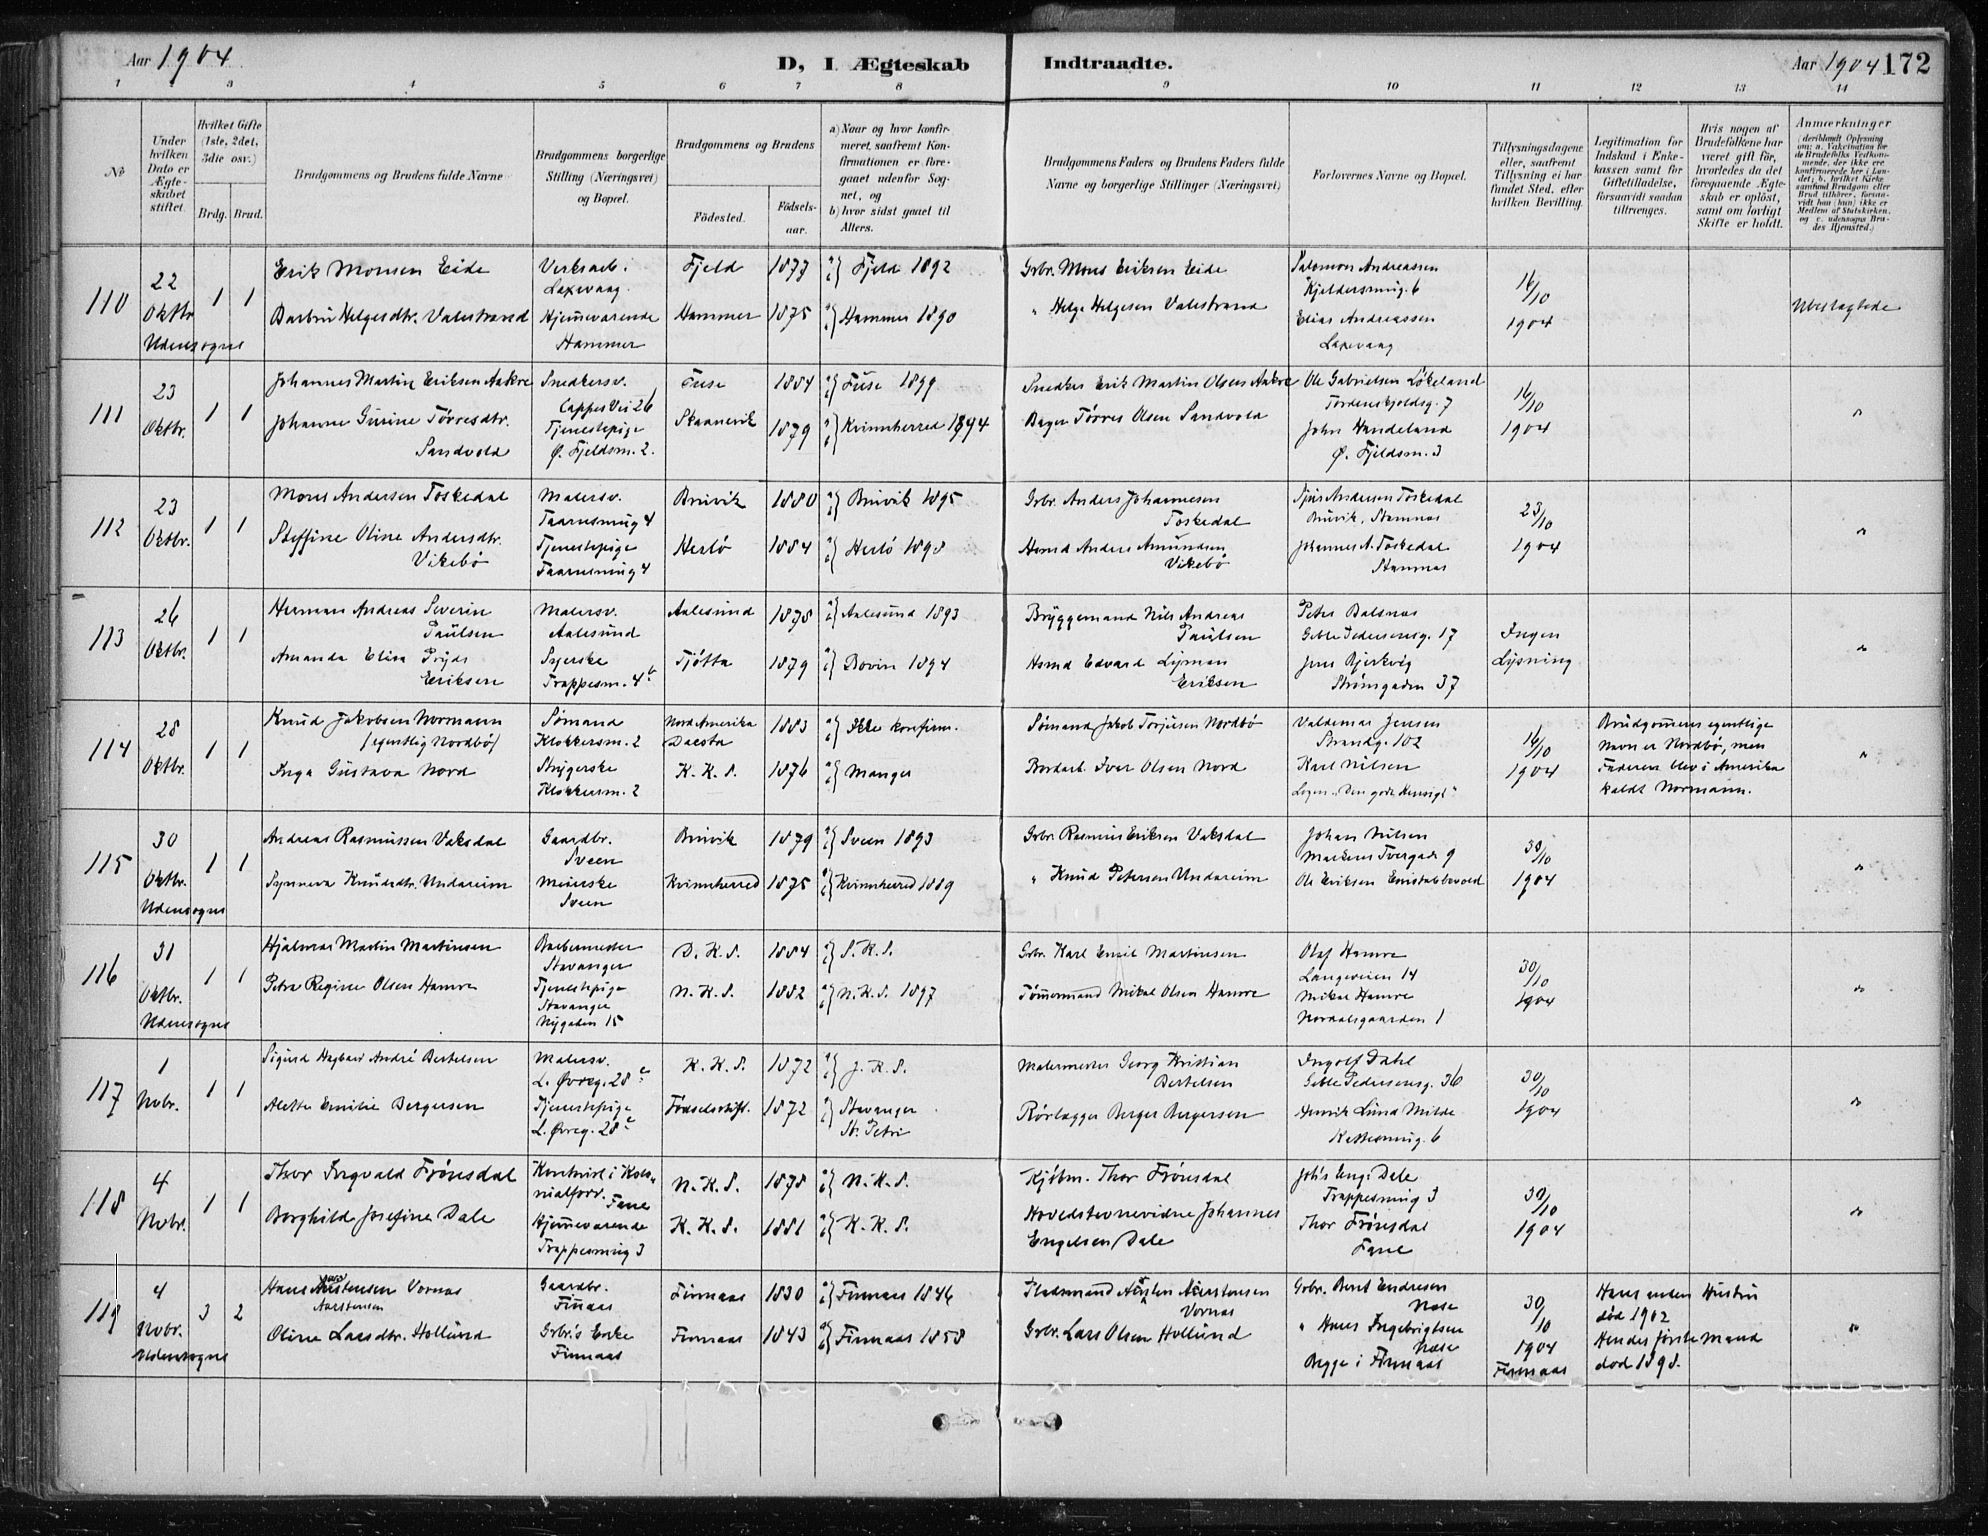 Aar 1904.
D, I Ægteskab Indtraadte.
Aar 1904 172
1 2 3 4 5 6 7 8 9 10 11 12 13 14
No
Under hvilken Dato er Ægteskabet stiftet.
Hvilket Gifte (1ste, 2det, 3die osv.)
Brdg. Brud.
Brudgommens og Brudens fulde Navne
Brudgommens borgerlige Stilling (Næringsvei) og Bopæl.
Brudgommens og Brudens
Födested.
Födselsaar.
a) Naar og hvor konfirmeret, saafremt Konfirmationen er foregaaet udenfor Sognet, og
b) hvor sidst gaaet til Alters.
Brudgommens Faders og Brudens Faders fulde Navne og borgerlige Stillinger (Næringsvei)
Forlovernes Navne og Bopæl.
Tillysningsdagene eller, saafremt Tillysning ei har fundet Sted, efter hvilken Bevilling.
Legitimation for Indskud i Enkekassen samt for Giftetilladelse, forsaavidt saadan tiltrænges.
Hvis nogen af Brudefolkene har været gift för, hvorledes da det foregaaende Ægteskab er oplöst, samt om lovligt Skifte er holdt.
Anmærkninger
(deriblandt Oplysning om: a. Vakcination for de Brudefolks Vedkommende, der ikke ere konfirmerede her i Landet; b. hvilket Kirkesamfund Brudgom eller Brud tilhörer, forsaavidt han (hun) ikke er Medlem af Statskirken, og c. udensogns Brudes Hjemsted.)
110
22
Oktbr.
Udensogns
1 1
Erik Monsen Eide
Barbru Helgesdtr. Valestrand
Verksarb.
Laxevaag.
Hjemmeværende
Hammer
Fjeld 1877 Fjeld 1892
Hammer 1875 Hammer 1890
Grbr. Mons Eriksen Eide
" Helge Helgesen Valestrand
Salomon Andreassen
Kjeldersmug. 6
Elias Andreassen
Laxevaag
16/10
1904
Ubeslagtede
111
23
Oktbr.
1 1
Johannes Martin Eriksen Aakre
Johanne Gurine Tørresdtr.
Sandvold
Snedkersv.
Cappes Vei 26
Tjenestepige
Ø. Fjeldsm. 2.
Fuse 1884 Fuse 1899
Skaanevik 1879 Kvinnherred 1894
Snedker Erik Martin Olsen Aakre
Bager Tørres Olsen Sandvold
Ole Gabrielsen Løkeland
Tordenskjoldsg. 7
John Handeland
Ø. Fjeldsm. 3
16/10
1904
"
112
23
Oktbr.
1 1
Mons Andersen Toskedal
Steffine Oline Andersdtr.
Vikebø
Malersv.
Taarnsmug 4
Tjenestepige
Taarnsmug 4
Bruvik 1880 Bruvik 1895
Herlö 1884 Herlö 1898
Grbr. Anders Johannesen
Toskedal
Hsmd Anders Amundsen
Vikebø
Andersen Toskedal
Bruvik, Stamnes
Johannes A. Toskedal
Stamnes
23/10
1904
"
113
26
Oktbr.
1 1
Herman Andreas Severin
Paulsen
Amanda Elisa
Eriksen
Malersv.
Aalesund
Syerske
Trappesm. 4b
Aalesund 1878 Aalesund 1893
Tjøtta 1879 1894
Bryggemand Nils Andreas
Paulsen
Hsmd Edvard Lyman
Eriksen
Peter Dalsnes
Geble Pedersensg. 17
Jens Bjerkvig
Strømgaden 37
Ingen
Lysning
"
114
28
Oktbr.
1 1
Knud Jakobsen Normann
/egentlig Nordbø/
Inga Gustava Nord
Sømand
Klokkersm. 2
Strygerske
Klokkersm. 2
Nord Amerika 1883 Ikke konfirm.
K. K. S. 1876 Manger
Sømand Jakob Torjusen Nordbø
Bordarb. Iver Olsen Nord
Valdemar Jensen
Strandg. 102
Karl Nilsen
Logen "Den gode Hensigt"
16/10
1904
Brudgommens egentlige
Navn er Nordbø, men
Faderen blev i Amerika
kaldt Normann.
"
115
30
Oktbr.
Udensogns
1 1
Andreas Rasmussen Vaksdal
Synneva Knudsdtr. Undarheim
Gaardbr.
Sveen
Meierske
Sveen
Bruvik 1879 Sveen 1893
Kvinnherred 1875 Kvinnherred 1889
Grbr. Rasmus Eriksen Vaksdal
" Knud Petersen Undarheim
Johan Nilsen
Markens Tvergade 9
Ole Eriksen
30/10
1904
"
116
31
Oktbr.
Udensogns
1 1
Hjalmar Martin Martinsen
Petra Regine Olsen Hamre
Barbermester
Stavanger
Tjenestepige
Stavanger
Nygaden 15
D. K. S. 1884 S. K. S.
N. K. S. 1882 N. K. S. 1897
Grbr. Karl Emil Martinsen
Tømmermand Mikal Olsen Hamre
Olaf Hamre
Langeveien 14
Mikal Hamre
Nordalsgaarden 1
30/10
1904
"
117
1
Novbr.
1 1
Sigurd Hagbart André Bertelsen
Alette Emilie Bergersen
Malersv.
L. Øvreg. 28c
Tjenestepige
L. Øvreg. 28c
K. K. S. 1872 J. K. S.
Fødselsstift. 1872 Stavanger
St. Petri
Malermester Georg Kristian
Bertelsen
Rørlægger Berger Bergersen
Ingolf Dahl
Geble Pedersensg. 36
Henrik Lund Milde
6
30/10
1904
"
118
4
Novbr.
1 1
Thor Ingvald Frønsdal
Borghild Josefine Dale
Kontorist i Kolonialforr.
Fane
Hjemmeværende
Trappesmug 3
N. K. S. 1878 N. K. S.
K. K. S. 1881 K. K. S.
Kjøbm. Thor Frønsdal
Hovedstevnevidne Johannes
Engelsen Dale
Johs Eng. Dale
Trappesmug 3
Thor Frønsdal
Fane
30/10
1904
"
119
4
Novbr.
Udensogns
3 2
Hans Aarstensen Vornes
Aarstensen
Oline Larsdtr. Hollund
Gaardbr.
Finnaas
Grbr's Enke
Finnaas
Finnaas 1830 Finnaas 1846
Finnaas 1843 Finnaas 1858
Vornes
Grbr. Lars Olsen Hollund
Grbr. Bernt Endresen
Næse
" Hans Ingebrigtsen
Næse
Begge i Finnaas
30/10
1904
Finnaas
Hans anden Hustru
død 1902
Hendes første Mand
død 1898.
"